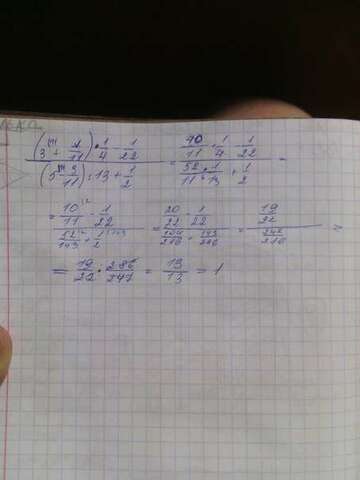 (3 + 7/11) · 1/4 - 1/22 / (5 - 3/11) : 13 + 1/2 = 40/11 · 1/4 - 1/22 / 52/11 · 1/13 + 1/2 =
= 10/11 - 1/22 / 52/143 + 1/2 = 20/22 - 1/22 / 104/286 + 143/286 = 19/22 / 247/286 =
= 19/22 · 286/247 = 13/13 = 1